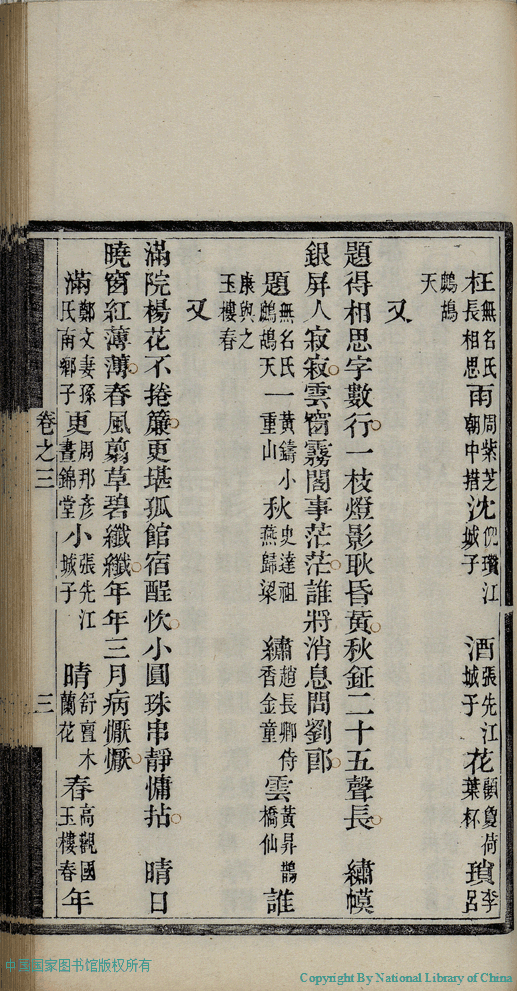 枉無名氏長相思雨周紫芝朝中措沈倪瓚江城子 酒張先江城子花顧夐荷葉杯瑣李呂
鷓鴣天
又
題得相思字數行一枝燈影耿昏黃秋鉦二十五聲長 繡幙
銀屏人寂寂雲窗霧閣事茫茫誰將消息問劉郎
題無名氏鷓鴣天一黃鑄小重山 秋史達祖燕歸梁 繡趙長卿侍香金童 雲黃昇鵲橋仙 誰
康與之玉樓春
又
滿院楊花不捲簾更堪孤館宿酲忺小圓珠串靜慵拈 晴日
曉窗紅薄薄春風翦草碧纖纖年年三月病懨懨
滿鄭文妻孫氏南鄉子更周邦彥晝錦堂小張先江城子 晴舒亶木蘭花 春高觀國玉樓春年
卷之三 三
中国国家图书馆版权所有
Copyright By National Library of China